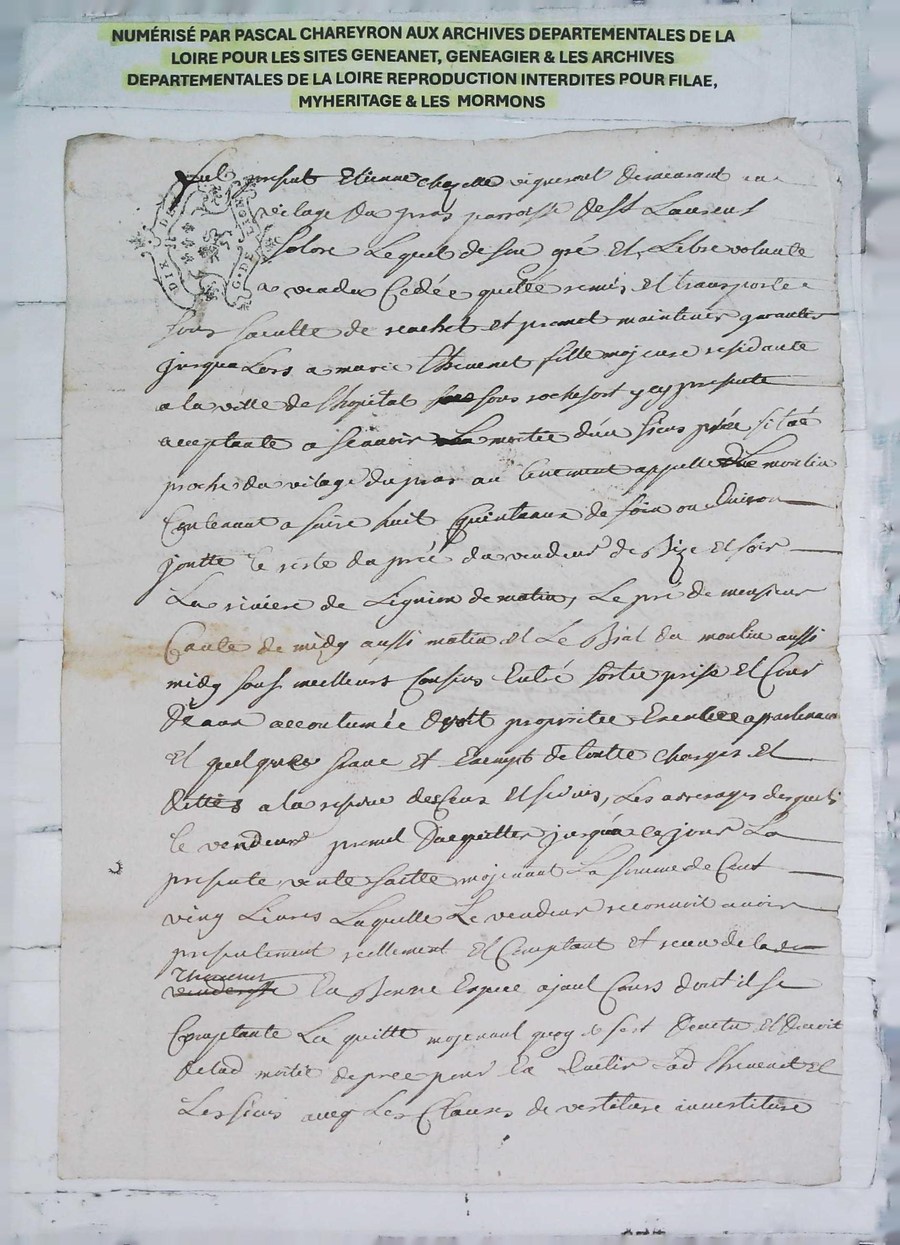 NUMÉRISÉ PAR PASCAL CHAREYRON AUX ARCHIVES DEPARTEMENTALES DE LA
LOIRE POUR LES SITES GENEANET, GENEAGIER & LES ARCHIVES
DEPARTEMENTALES DE LA LOIRE REPRODUCTION INTERDITES POUR FILAE,
MYHERITAGE & LES MORMONS
fut present Etienne chazelle vigneront demeurant
vilage du pras parroisse de St Laurent
Solore Lequel de son gré et Libre volonte
a vendu Cedée quitté remis et transportée
sous faculté de reachet et promet maintenir garantir
jusqua Lors a marie thevenet fille majeure residante
a la ville de lhopital sous rochefort y cy presente
acceptante a scavoir La moitié d'un sien prée situé
proche du vilage du pras au tenement appellé Le moulin
Contenant a faire huit quintaux de foin ou Environ
joutte le reste du pré du vendeur de Bize et soir
La riviere de Lignion de matin, Le pré de monsieur
de midy aussi matin et Le Bial du moulin aussi
midy sauf meilleurs Confins Entré sortie prise et Cour
D'eaux accoutumée
et quelquee franc et Exempt de toutte charges et
dettes a la reserve des Cens et servis, Les arrerages desquels
le vendeur promet D'acquitter jusqua ce jour La
presente vente faitte mojenant La somme de Cent
ving Livres Laquelle Le vendeur reconnoit avoir
presentement reellement et Comptant et receu de lad
Thevenet
En Bonne Espece ajant Cours dont il se
Contente La quitte mojenant quoy se fort Devetu et
delad moitié de pree pour En lad thevenet et
Les siens aveq Les Clauses de vestiture investiture
DIX
G. DE LION